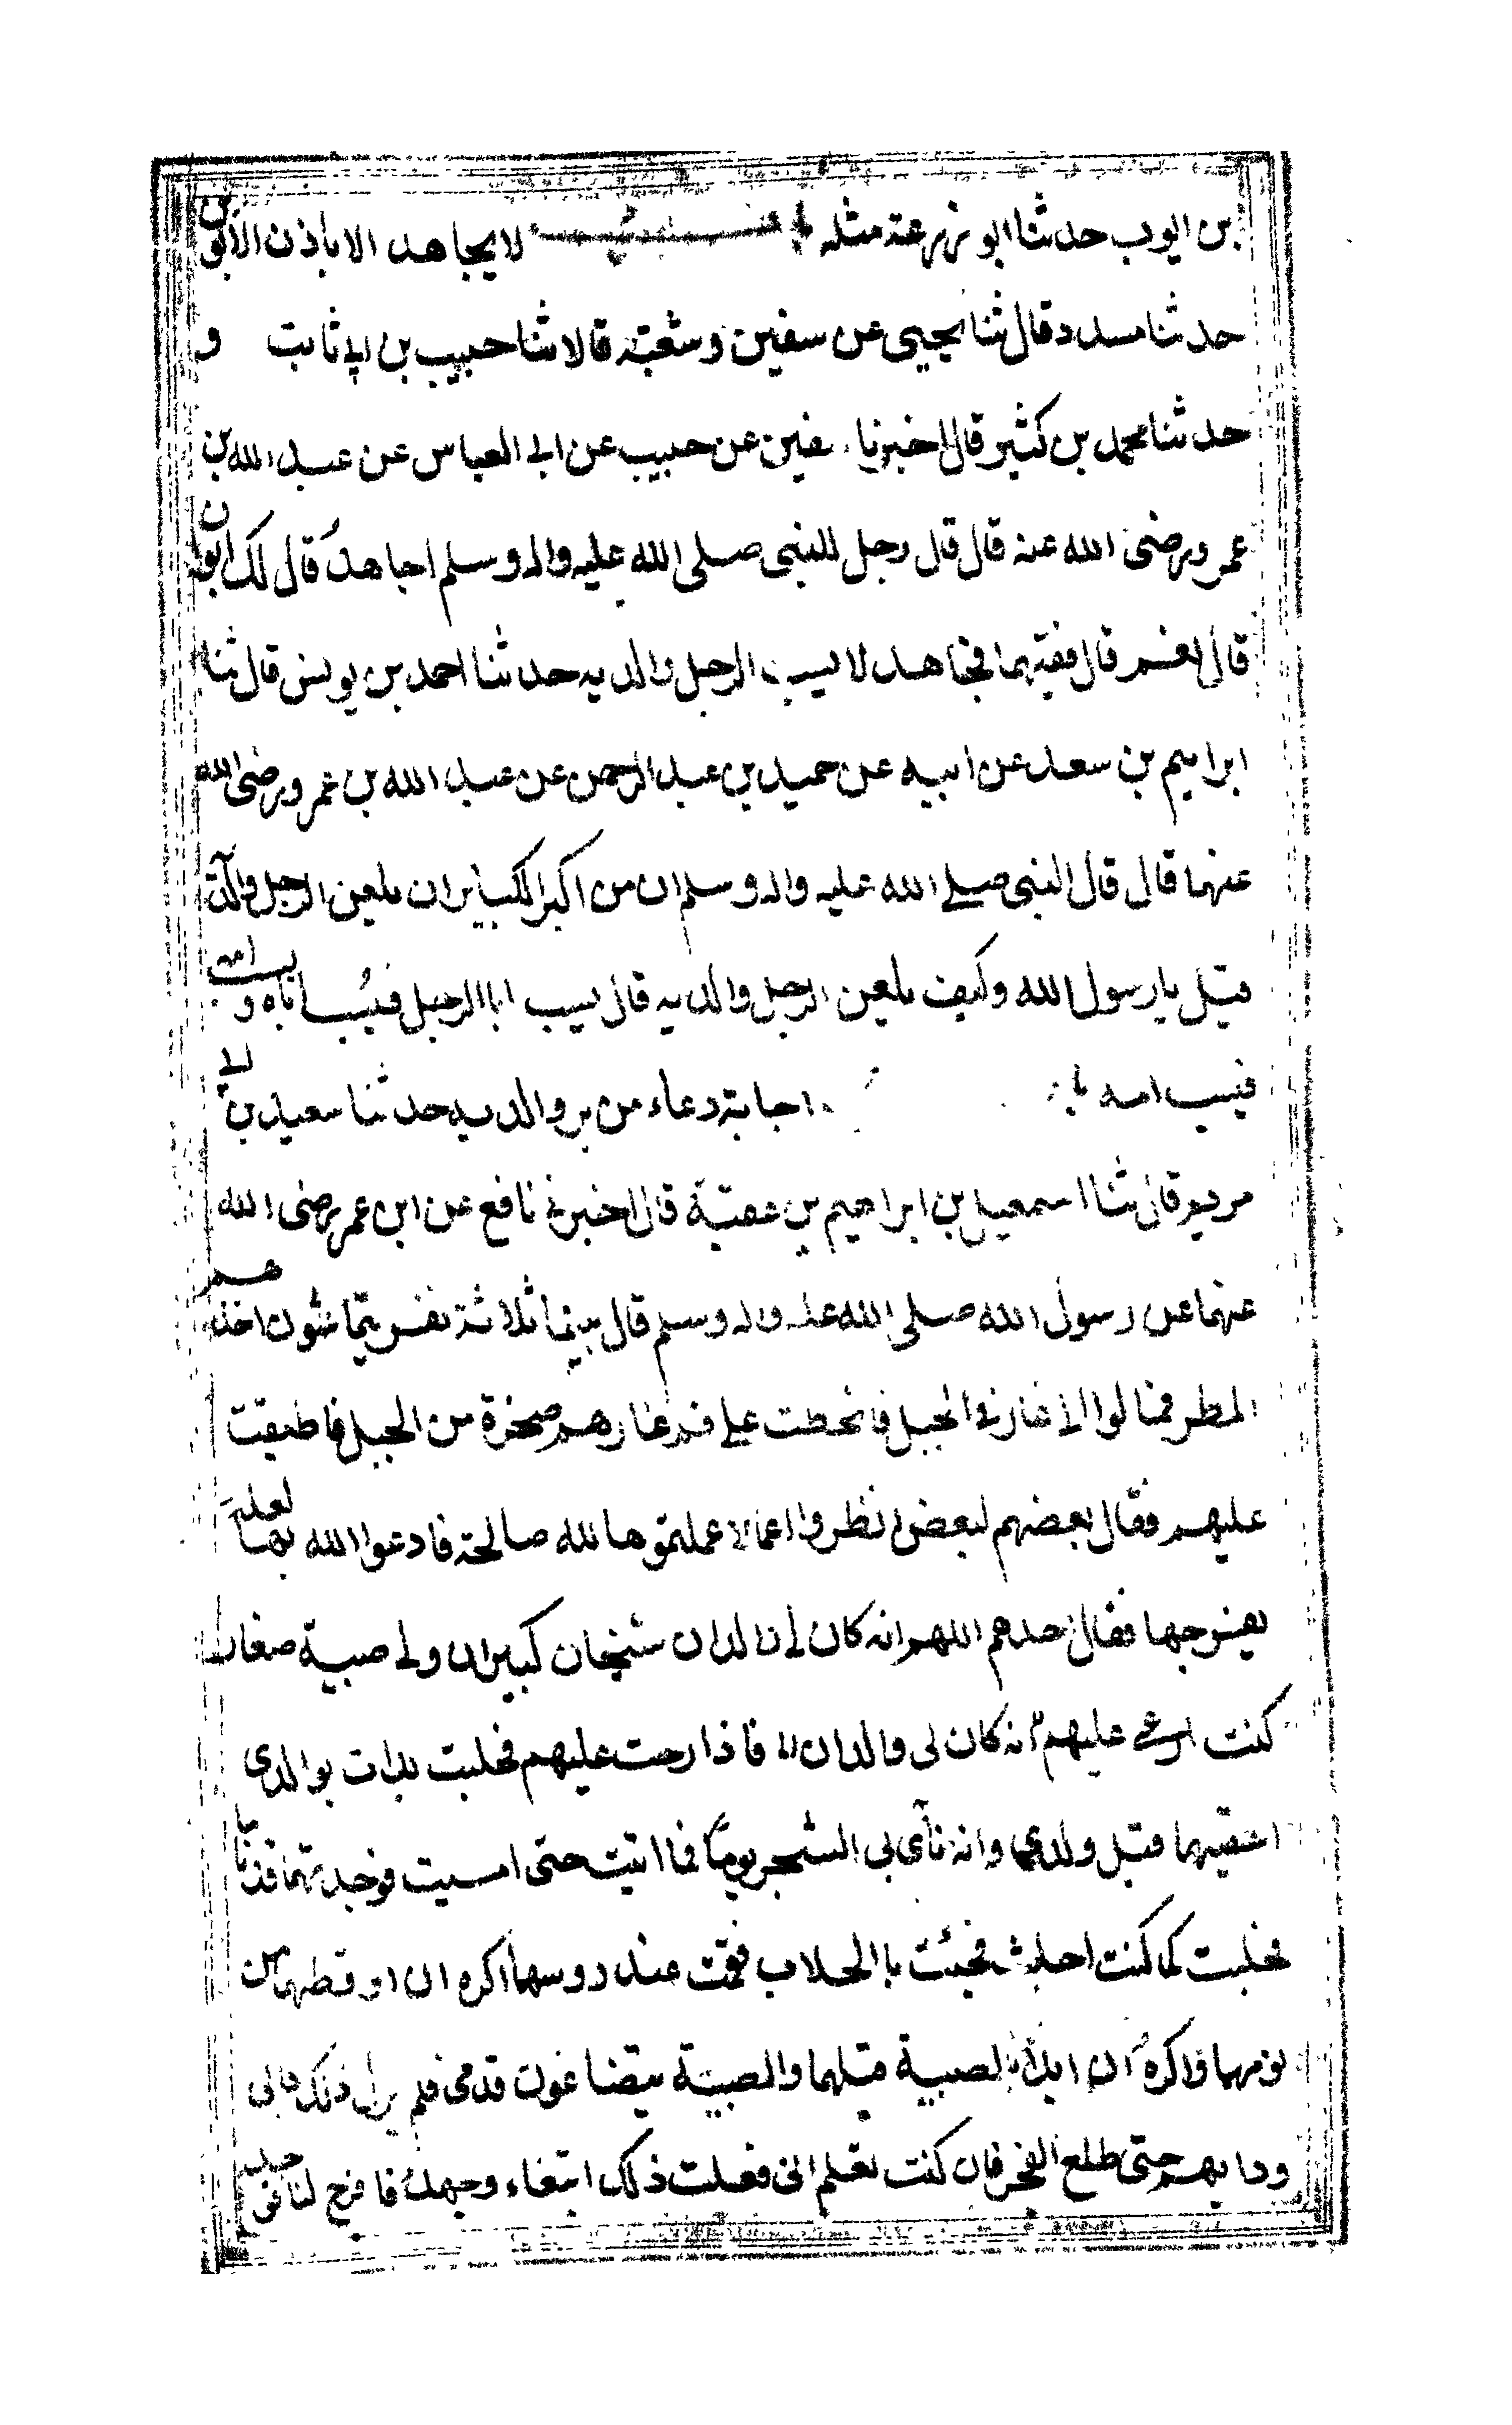 بن ايوب حدثنا ابو زرعة مثله لا يجاهد الا باذن الابوين
حدثنا مسدد قال ثنا يحيى عن سفين وشعبة قالا ثنا حبيب بن ابي ثابت و
حدثنا محمد بن كثير قال اخبرنا سفين عن حبيب عن ابي العباس عن عبد الله بن
عمرو رضى الله عنه قال قال رجل للنبى صلى الله عليه واله وسلم اجاهد قال لك ابوان
قال نعم قال ففيهما فجاهد لا يسب الرجل والديه حدثنا احمد بن يونس قال ثنا
ابراهيم بن سعد عن ابيه عن حميد بن عبد الرحمن عن عبد الله بن عمرو رضى الله
عنهما قال قال النبى صلے الله عليه واله وسلم ان من اكبر الكبائر ان يلعن الرجل والديه
قيل يا رسول الله وكيف يلعن الرجل والديه قال يسب ابا الرجل فيسب اباه و يسب امه
فيسب امه اجابة دعاء من بر والديه حدثنا سعيد بن ابي
مريم قال ثنا اسمعيل بن ابراهيم بن عقبة قال اخبرني نافع عن ابن عمر رضى الله
عنهما عن رسول الله صلى الله عليه واله وسلم قال بينما ثلاثة نفر يتماشون اخذهم
المطر فمالوا الى غار في الجبل فانحطت على فم غارهم صخرة من الجبل فاطبقت
عليهم فقال بعضهم لبعض انظروا اعمالا عملتموها لله صالحة فادعوا الله بها لعله
يفرجها فقال احدهم اللهم انه كان لي والدان شيخان كبيران ولى صبية صغار
كنت ارعى عليهم انه كان لى والدان فاذا رحت عليهم فحلبت بدات بوالدى
اسقيهما قبل ولدى وانه نأى بى الشجر يوما فما اتيت حتى امسيت فوجدتهما قد ناما
فحلبت كما كنت احلب فجئت باالحلاب فقمت عند روسهما اكره ان اوقظهما من
نومهما واكره ان ابدأ بالصبية قبلهما والصبية يتضاغون قدمى فلم يزل ذلك دابى
ودابهم حتى طلع الفجر فان كنت تعلم انى فعلت ذلك ابتغاء وجهك فافرج لنا